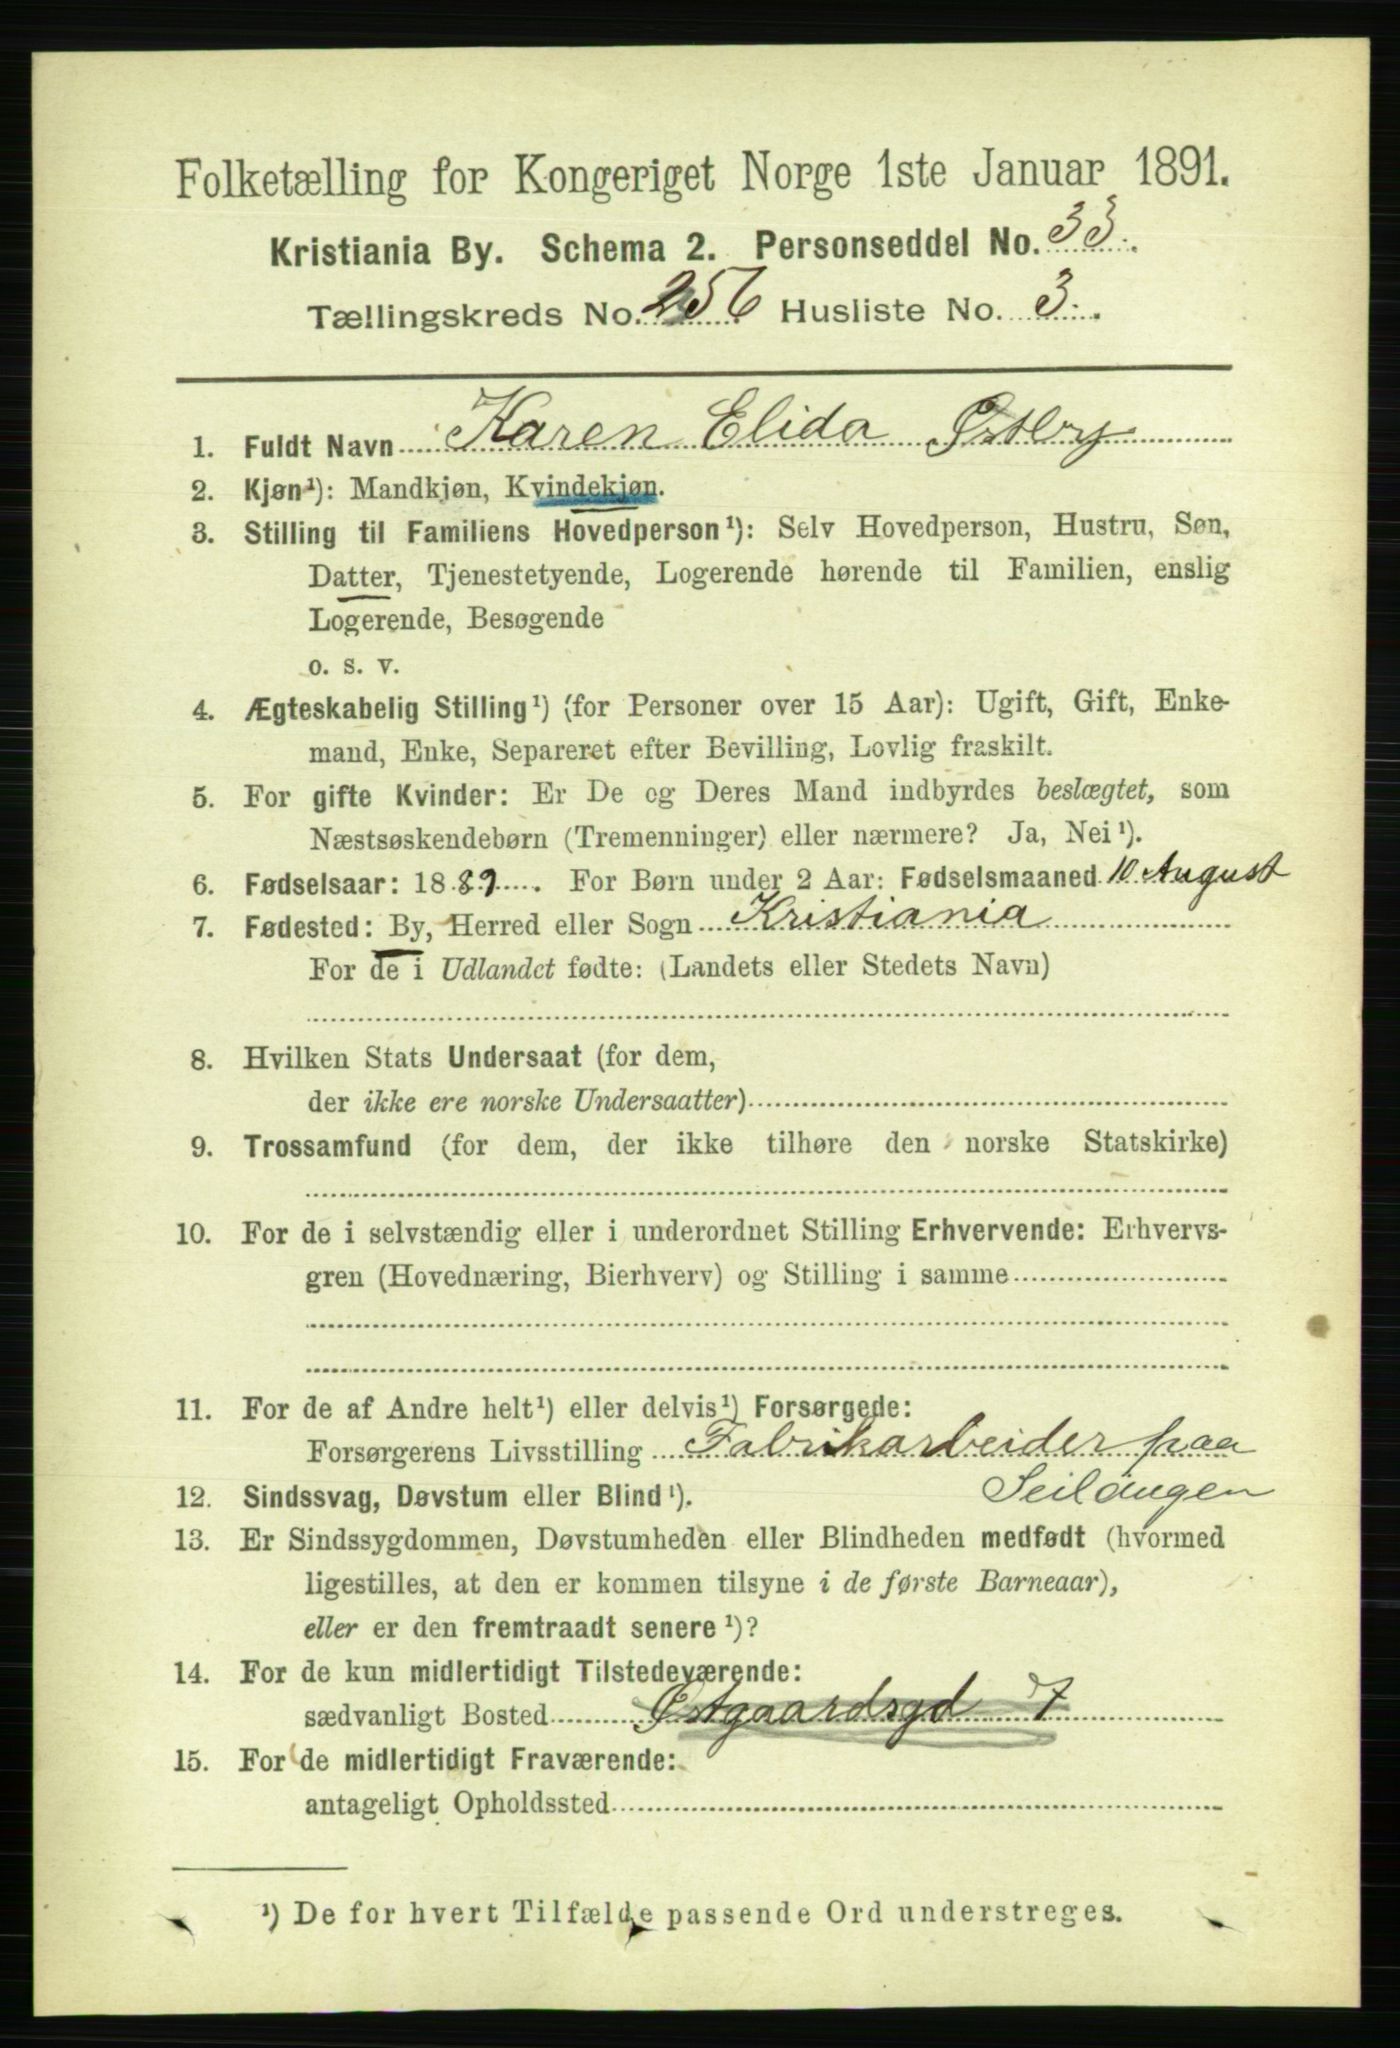 Folketælling for Kongeriget Norge 1ste Januar 1891.
Kristiania By. Schema 2. Personseddel No. 33.
Tællingskreds No. 256 Husliste No. 3.
1. Fuldt Navn Karen Elida Østby
2. Kjøn¹): Mandkjøn, Kvindekjøn.
3. Stilling til Familiens Hovedperson¹): Selv Hovedperson, Hustru, Søn,
Datter, Tjenestetyende, Logerende hørende til Familien, enslig
Logerende, Besøgende
o. s. v.
4. Ægteskabelig Stilling¹) (for Personer over 15 Aar): Ugift, Gift, Enke-
mand, Enke, Separeret efter Bevilling, Lovlig fraskilt.
5. For gifte Kvinder: Er De og Deres Mand indbyrdes beslægtet, som
Næstsøskendebørn (Tremenninger) eller nærmere? Ja, Nei¹).
6. Fødselsaar: 1889. For Børn under 2 Aar: Fødselsmaaned 10 August
7. Fødested: By, Herred eller Sogn Kristiania
For de i Udlandet fødte: (Landets eller Stedets Navn)
8. Hvilken Stats Undersaat (for dem,
der ikke ere norske Undersaatter)
9. Trossamfund (for dem, der ikke tilhøre den norske Statskirke)
10. For de i selvstændig eller i underordnet Stilling Erhvervende: Erhvervs-
gren (Hovednæring, Bierhverv) og Stilling i samme
11. For de af Andre helt¹) eller delvis¹) Forsørgede:
Forsørgerens Livsstilling Fabrikarbeider paa
Seildugen
12. Sindssvag, Døvstum eller Blind¹).
13. Er Sindssygdommen, Døvstumheden eller Blindheden medfødt (hvormed
ligestilles, at den er kommen tilsyne i de første Barneaar),
eller er den fremtraadt senere¹)?
14. For de kun midlertidigt Tilstedeværende:
sædvanligt Bosted Østgaardsgd 7
15. For de midlertidigt Fraværende:
antageligt Opholdssted
¹) De for hvert Tilfælde passende Ord understreges.